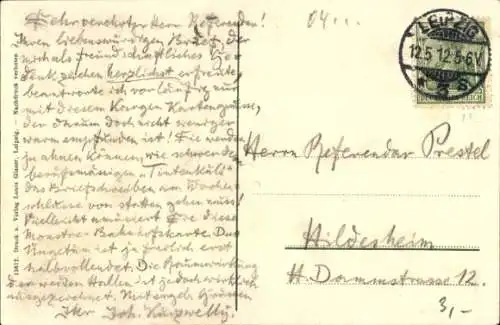 Sehr verehrter Herr Referendar!
Ihren liebenswürdigen Brief, der
mich als freundschaftliches Ge-
denkzeichen herzlichst erfreute,
beantworte ich vorläufig nur
mit diesem kargen Kartengruss,
der darum doch nicht weniger
warm empfunden ist! Sie werden
ja ahnen können, wie schwer dem
berufsmässigen "Tintenkuli"
das Briefschreiben am Wochen-
schlusse von statten gehen muss!
Vielleicht amüsiert Sie diese
Monstre-Bahnhofskarte. Das
ist ja freilich erst
halbvollendet. Die Raumwirkung
der werden Hallen ist jedoch wirklich
ausgezeichnet. Mit ergeb. Grüssen
Ihr Joh. Kurzwelly.
13612. Druck u. Verlag Louis Glaser, Leipzig. Nachdruck verboten.
04
LEIPZIG
12.5 12.5-6V
* 3 S.
Herrn Referendar Prestel
Hildesheim
H. Dammstrasse 12.
3,-